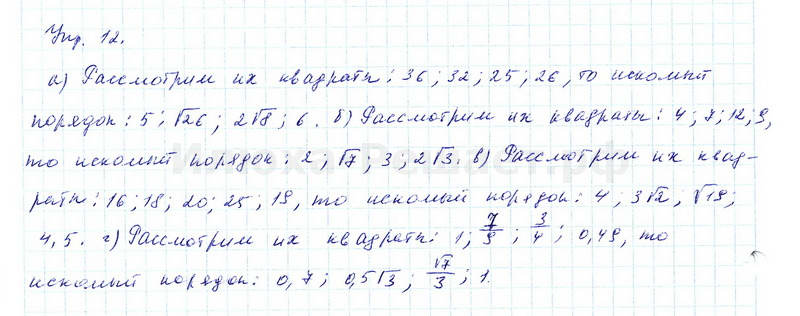 Упр. 12.
а) Рассмотрим их квадраты: 36; 32; 25; 26, то искомый
порядок: 5; √26; 2√8; 6. б) Рассмотрим их квадраты: 4; 7; 12; 9,
то искомый порядок: 2; √7; 3; 2√3. в) Рассмотрим их квад-
раты: 16; 18; 20; 25; 19, то искомый порядок: 4; 3√2; √19;
4,5. г) Рассмотрим их квадраты: 1; 7/9; 3/4; 0,49, то
искомый порядок: 0,7; 0,5√3; √7/3; 1.